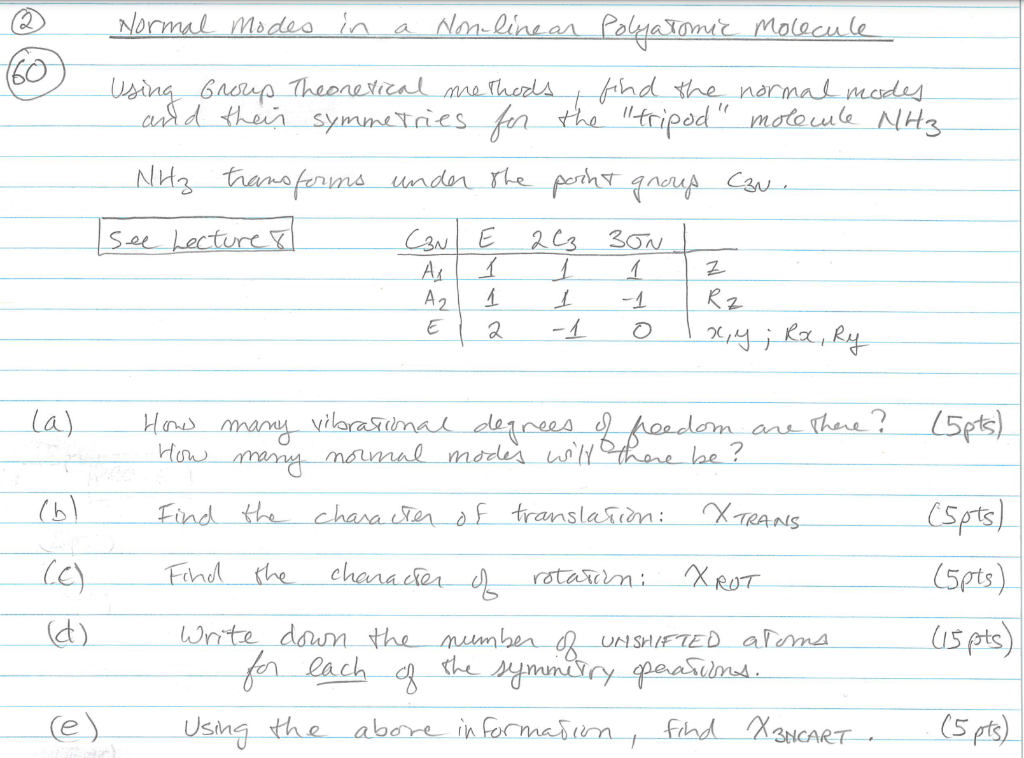 ② Normal Modes in a Non-linear Polyatomic Molecule
60
Using Group Theoretical methods, find the normal modes
and their symmetries for the "tripod" molecule NH3
NH3 transforms under the point group C3v.
See Lecture 8
C3v E 2C3 3σv
A1 1 1 1 z
A2 1 1 -1 Rz
E 2 -1 0 x,y ; Rx, Ry
(a) How many vibrational degrees of freedom are there? (5pts)
How many normal modes will there be?
(b) Find the character of translation: χTRANS (5pts)
(c) Find the character of rotation: χROT (5pts)
(d) Write down the number of UNSHIFTED atoms (15 pts)
for each of the symmetry operations.
(e) Using the above information, find χ3NCART. (5 pts)